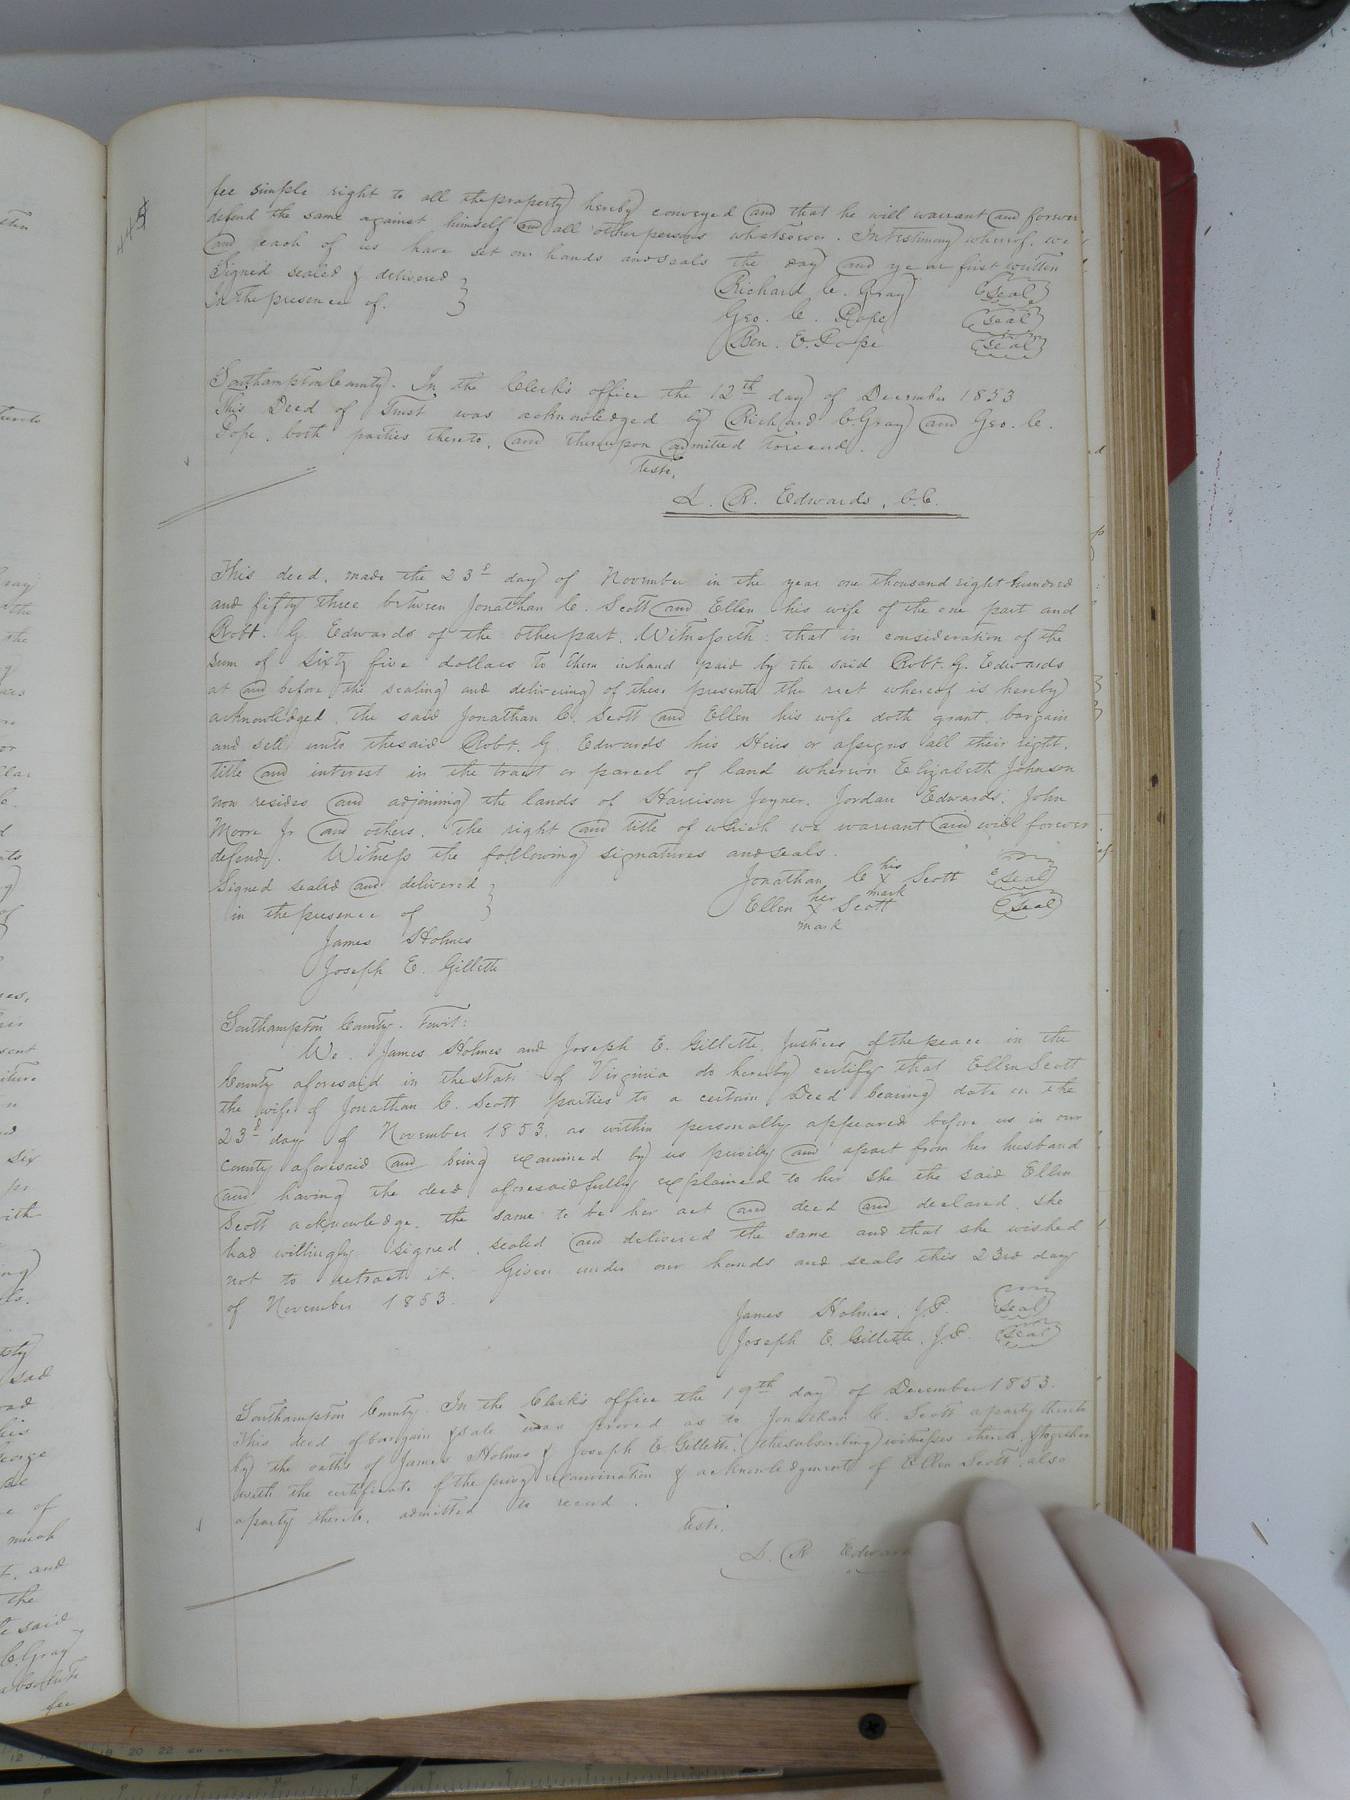 445
fee simple right to all the property hereby conveyed and that he will warrant and forever
defend the same against himself and all other persons whatsoever. In testimony whereof, we
and each of us have set our hands and seals the day and year first written
Signed sealed & delivered
in the presence of.
Richard C. Gray (Seal)
Geo. C. Pope (Seal)
Ben. E. Pope (Seal)
Southampton County. In the Clerk's office the 12th day of December 1853
This Deed of Trust was acknowledged by Richard C. Gray and Geo. C.
Pope, both parties thereto, and thereupon admitted to record.
Teste,
L. R. Edwards, C.C.
This deed, made the 23d day of November in the year one thousand eight hundred
and fifty three between Jonathan C. Scott and Ellen his wife of the one part and
Robt. G. Edwards of the other part, Witnesseth: that in consideration of the
sum of sixty five dollars to them in hand paid by the said Robt. G. Edwards
at and before the sealing and delivering of these presents the rect whereof is hereby
acknowledged, the said Jonathan C. Scott and Ellen his wife doth grant, bargain
and sell unto the said Robt. G. Edwards his Heirs or assigns all their right,
title and interest in the tract or parcel of land whereon Elizabeth Johnson
now resides and adjoining the lands of Harrison Joyner, Jordan Edwards, John
Moore Jr and others, the right and title of which we warrant and will forever
defend. Witness the following signatures and seals.
Signed sealed and delivered
in the presence of
James Holmes
Joseph E. Gillette
Jonathan C his x mark Scott (Seal)
Ellen her x mark Scott (Seal)
Southampton County. Towit:
We, James Holmes and Joseph E. Gillette, Justices of the peace in the
County aforesaid in the state of Virginia do hereby certify that Ellen Scott
the wife of Jonathan C. Scott parties to a certain Deed bearing date on the
23d day of November 1853, as within personally appeared before us in our
County aforesaid and being examined by us privily and apart from her husband
and having the deed aforesaid fully explained to her she the said Ellen
Scott acknowledge, the same to be her act and deed and declared, she
had willingly signed, sealed and delivered the same and that she wished
not to retract it. Given under our hands and seals this 23rd day
of November 1853.
James Holmes, J.P. (Seal)
Joseph E. Gillette, J.P. (Seal)
Southampton County. In the Clerk's office the 19th day of December 1853.
This deed of bargain & sale was proved as to Jonathan C. Scott a party thereto
by the oaths of James Holmes & Joseph E. Gillette, the subscribing witnesses thereto, & together
with the certificate of the privy examination & acknowledgment of Ellen Scott, also
a party thereto, admitted to record.
Teste,
L. R Edwards